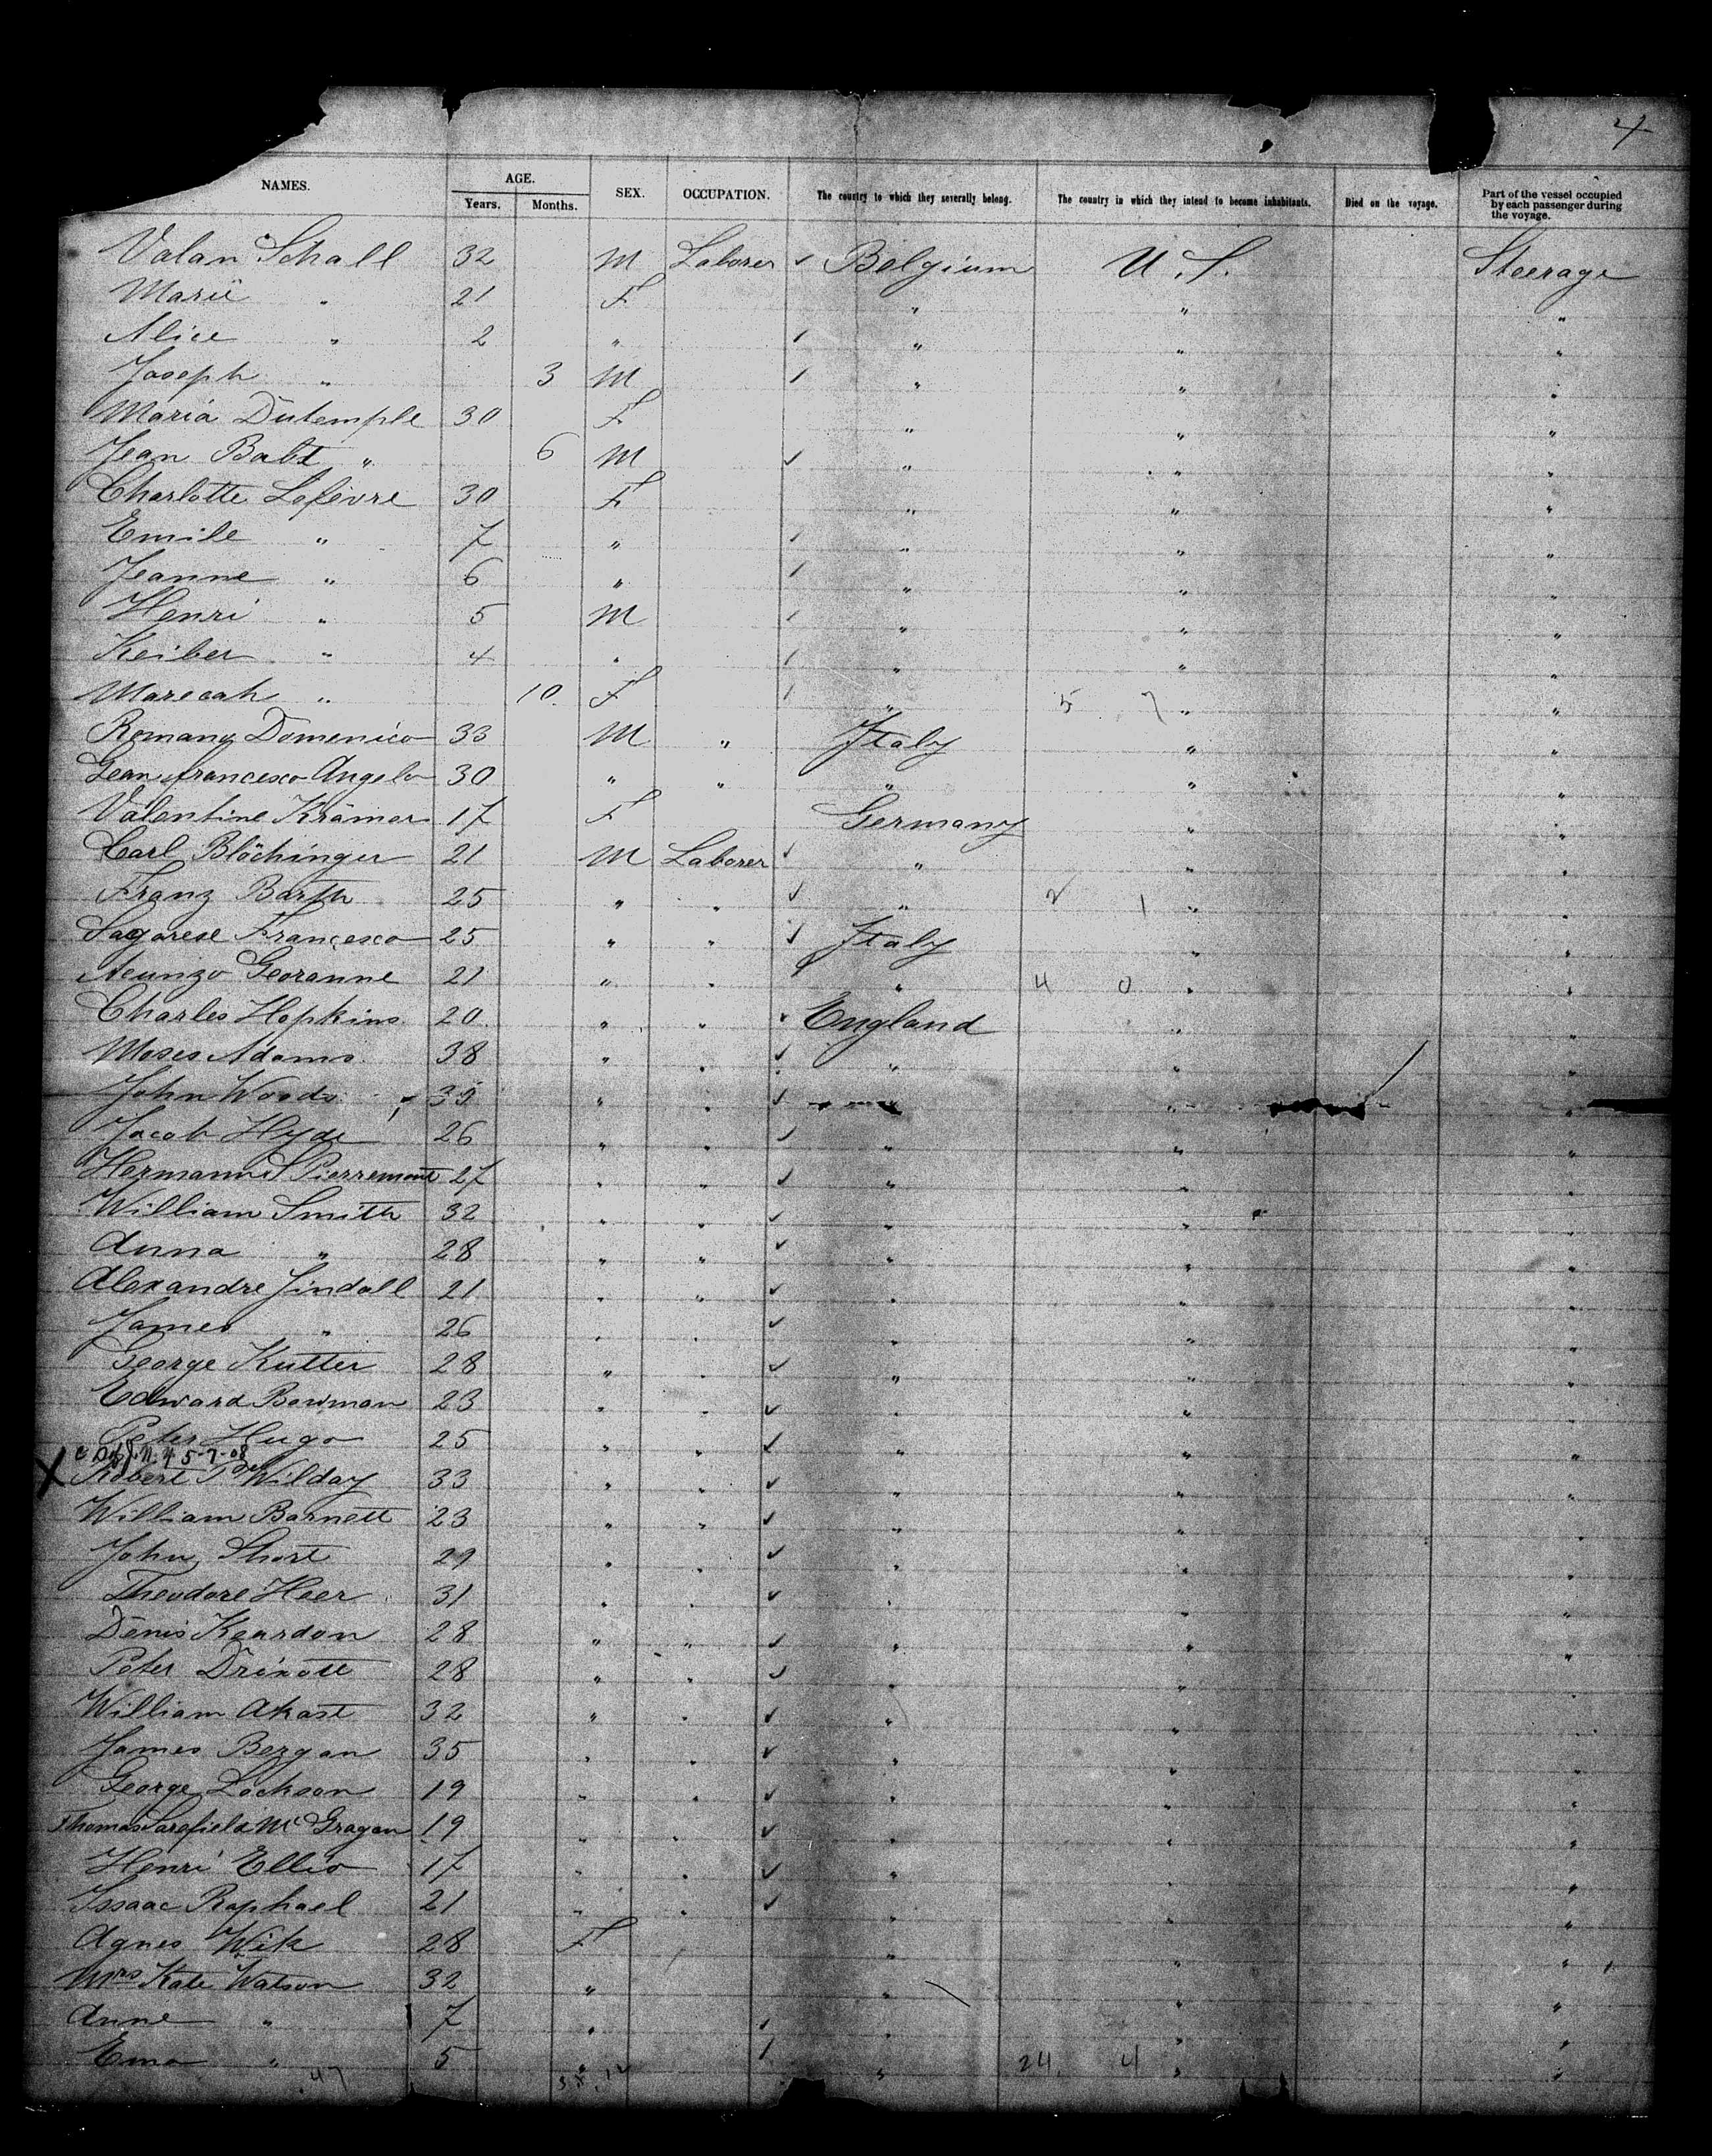 4
NAMES. AGE. Years. Months. SEX. OCCUPATION. The country to which they severally belong. The country in which they intend to become inhabitants. Died on the voyage. Part of the vessel occupied by each passenger during the voyage.
Valan Schall 32 M Laborer ✓ Belgium U.S. Steerage
Marie " 21 F " " "
Alice " 2 " " " "
Joseph " 3 M " " "
Maria Dutemple 30 F " " "
Jean Babt " 6 M ✓ " " "
Charlotte Lefèvre 30 F " " "
Emile " 7 " " " "
Jeanne " 6 " " " "
Henri " 5 M " " "
Keiber " 4 " " " "
Marecah " 10 F " 5 7 " "
Romany Domenico 33 M " Italy " "
Gean francesco Angelo 30 " " " " "
Valentine Krämer 17 F Germany " "
Carl Blöchinger 21 M Laborer ✓ " " "
Franz Barth 25 " " ✓ " 2 1 " "
Sagarese Francesco 25 " " ✓ Italy " "
Neunzo Georanne 21 " " " 4 0 " "
Charles Hopkins 20 " " ✓ England " "
Moses Adams 38 " " ✓ " " "
John Woods 35 " " ✓ " "
Jacob Hyde 26 " " ✓ " " "
Hermann Pierremont 27 " " ✓ " " "
William Smith 32 " " ✓ " " "
Anna " 28 " " ✓ " " "
Alexandre Jindall 21 " " ✓ " " "
James " 26 " " ✓ " " "
George Kutter 28 " " ✓ " " "
Edward Bowman 23 " " ✓ " " "
Peter Hugo 25 " " ✓ " " "
5-7-08
X Robert Wilday 33 " " ✓ " " "
William Barnett 23 " " ✓ " " "
John Short 29 " " ✓ " " "
Theodore Heer 31 " " ✓ " " "
Denis Keardon 28 " " ✓ " " "
Peter Drixott 28 " " ✓ " " "
William Akast 32 " " ✓ " " "
James Bezgan 35 " " ✓ " " "
George Lockson 19 " " ✓ " " "
Thomas Sarsfield Mc Gragan 19 " " ✓ " " "
Henri Ellis 17 " " ✓ " " "
Issaac Raphael 21 " " ✓ " " "
Agnes Wik 28 F " " "
Mrs Kate Watson 32 " " " "
Anne " 7 " " " "
Ema " 5 " " 24 4 " "
47